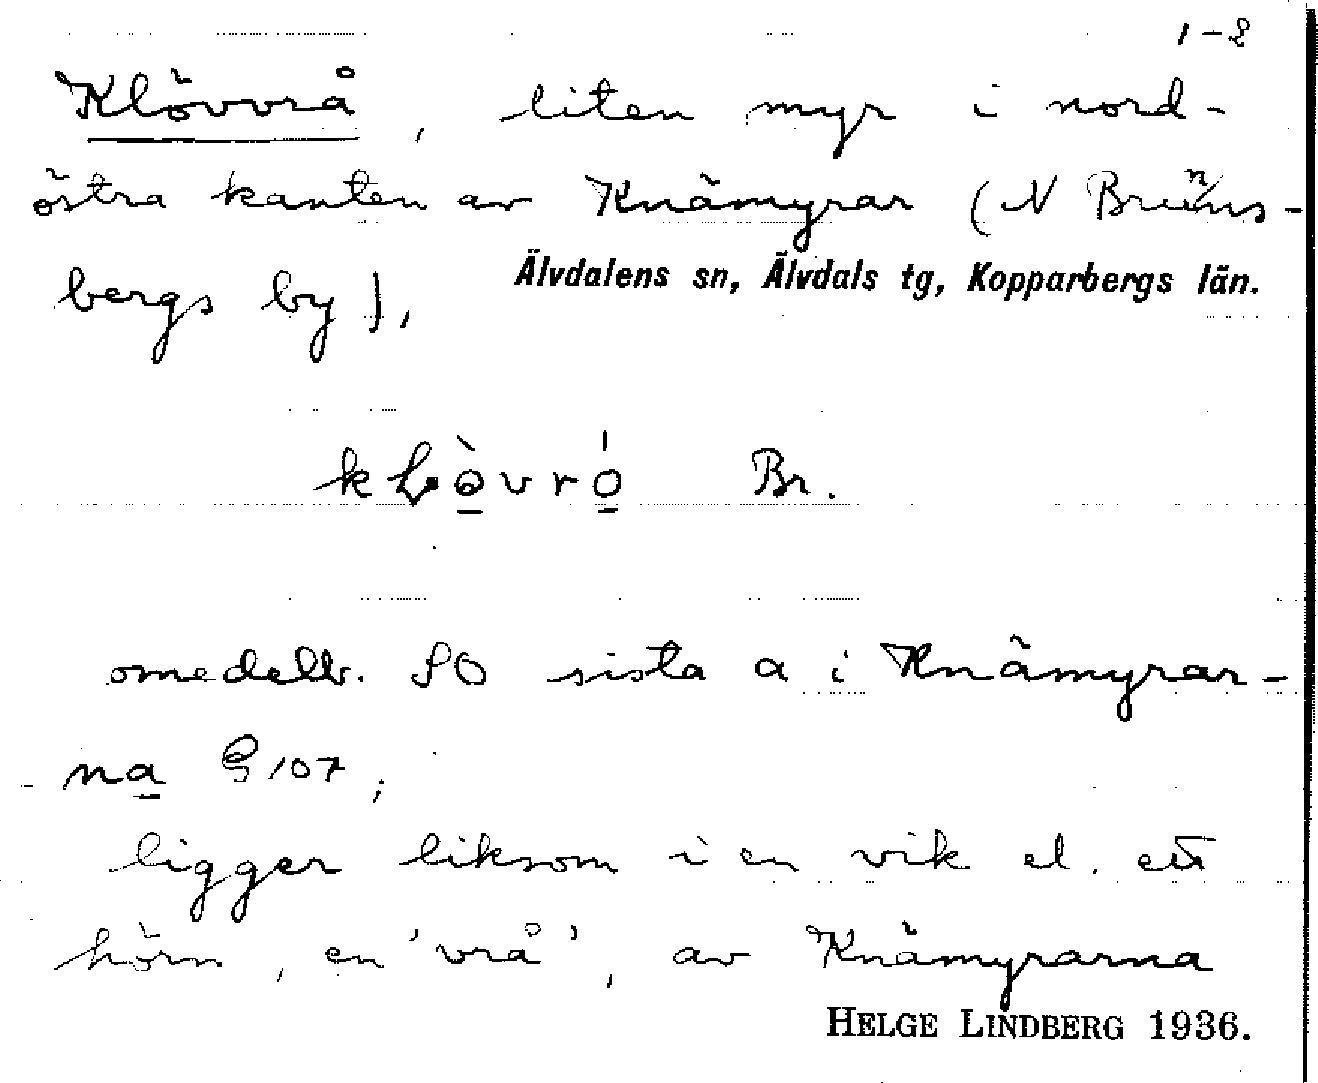 1-2
Klövvrå, liten myr i nord-
östra kanten av Knämyrar (N Brunns-
bergs by),
Älvdalens sn, Älvdals tg, Kopparbergs län.
Br.
omedelb. SO sista a i Knämyrar-
na G 107;
ligger liksom i en vik el. ett
hörn, en 'vrå', av Knämyrarna
HELGE LINDBERG 1936.